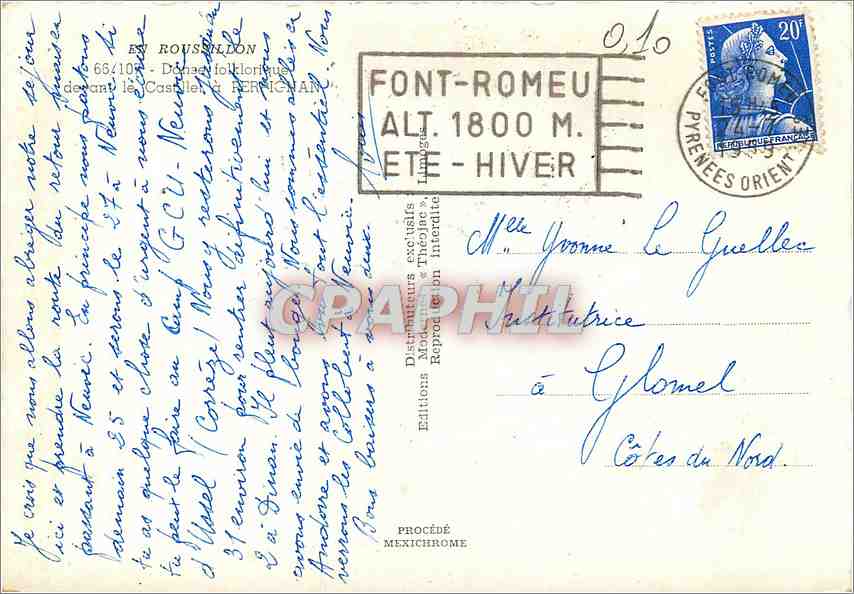 EN ROUSSILLON
66/107 - Danse folklorique
devant le Castillet à PERPIGNAN
Je crois que nous allons abréger notre séjour
ici et prendre la route du retour
passant à Neuvic. En principe nous partons
demain 25 et serons le 27 à Neuvic. Si
tu as quelque chose d'urgent à nous écrire
tu peux le faire au Camp GCU - Neuvic
d'Ussel (Corrèze) Nous y resterons
31 environ pour rentrer définitivement le
2 à Dinan. Il pleut aujourd'hui et nous
avons envie de bouger. Nous sommes allés en
Andorre et avons vu tout l'essentiel. Nous
verrons les Collobert à Neuvic.
Bons baisers à vous deux.
Distributeurs exclusifs :
Editions Modernes « Théojac », Limoges
Reproduction interdite
PROCÉDÉ
MEXICHROME
0,10
FONT-ROMEU
ALT. 1800 M.
ETE - HIVER
POSTES
20F
REPUBLIQUE FRANÇAISE
FONT-ROMEU
PYRENEES ORIENTLES
Melle Yvonne Le Guellec
Institutrice
à Glomel
Côtes du Nord.
CPAPHIL